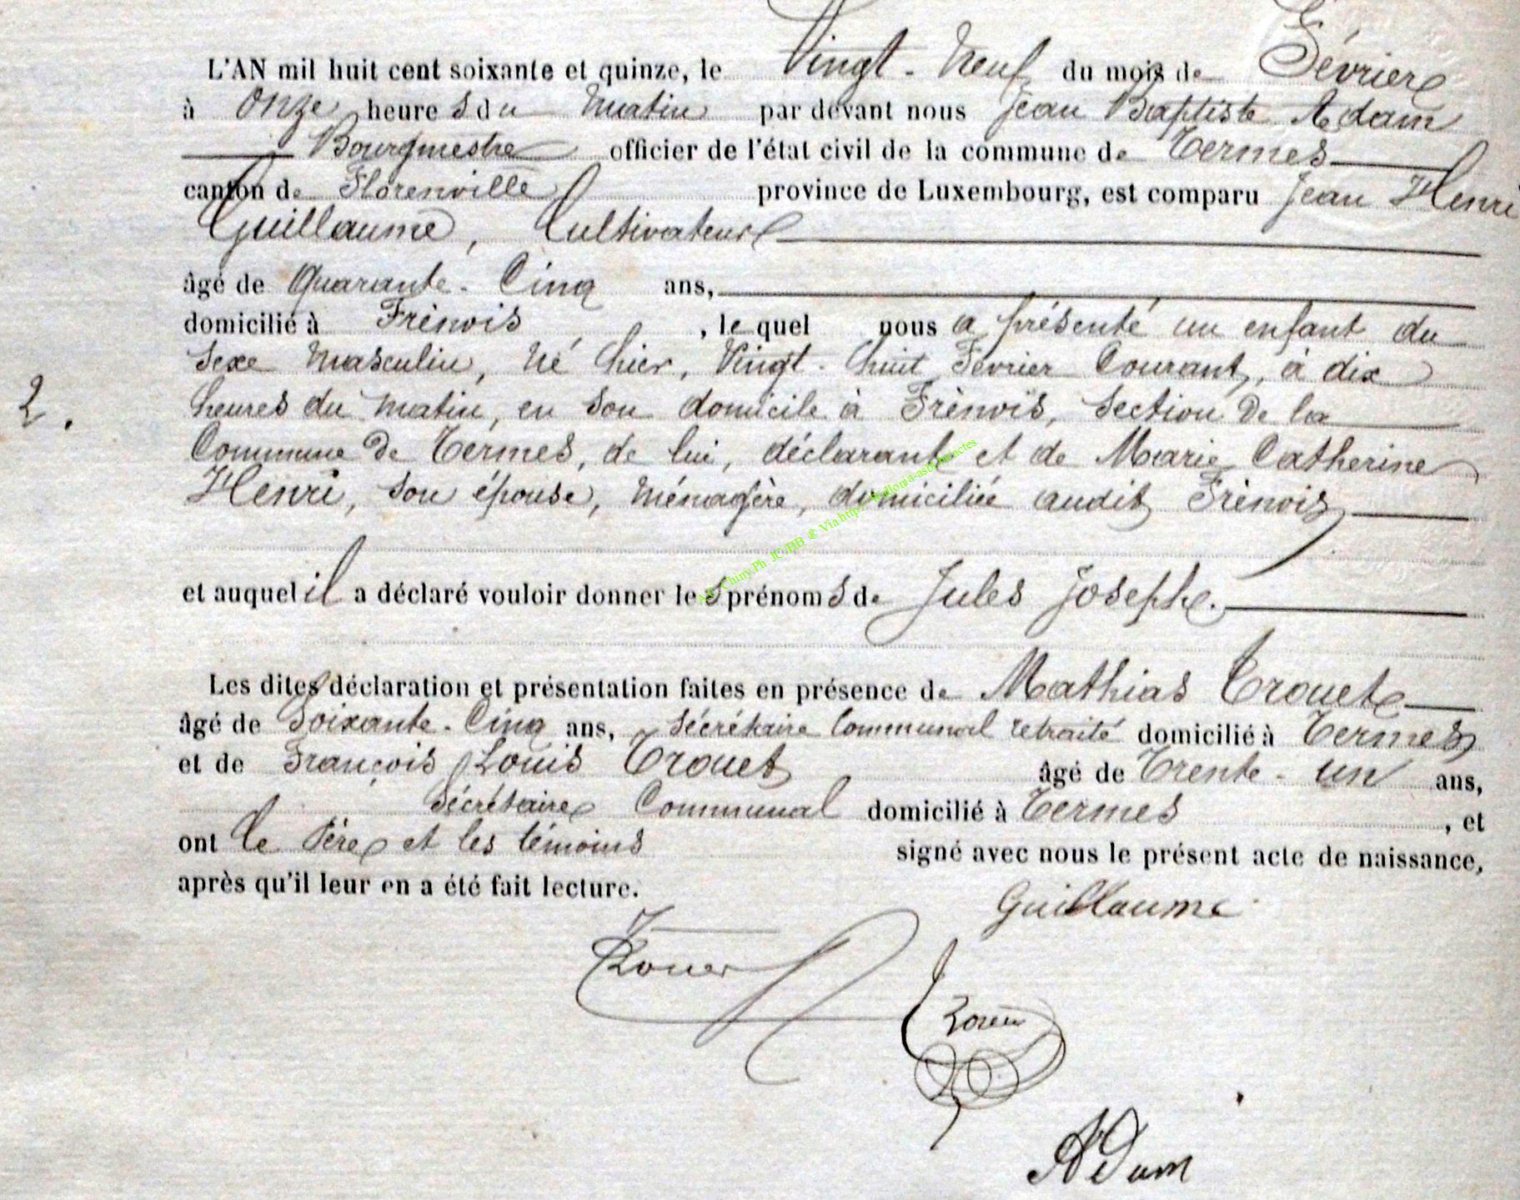 L'AN mil huit cent soixante et quinze, le Vingt-Neuf du mois de Février
à Onze heures du Matin par devant nous Jean Baptiste Adam
Bourgmestre officier de l'état civil de la commune de Termes
canton de Florenville province de Luxembourg, est comparu Jean Henri
Guillaume, Cultivateur
âgé de Quarante-Cinq ans,
domicilié à Frénois, lequel nous a présenté un enfant du
Sexe Masculin, Né hier, Vingt-huit Février Courant, à dix
heures du matin, en Son domicile à Frénois, Section de la
Commune de Termes, de lui, déclarant et de Marie Catherine
2.
Henri, Son épouse, Ménagère, domiciliée audit Frénois
et auquel il a déclaré vouloir donner les prénoms de Jules Joseph.
Les dites déclaration et présentation faites en présence de Mathias Trouet
âgé de Soixante-Cinq ans, Sécrétaire Communal retraité domicilié à Termes
et de François Louis Trouet âgé de Trente-un ans,
Sécrétaire Communal domicilié à Termes, et
ont le Père et les témoins signé avec nous le présent acte de naissance,
après qu'il leur en a été fait lecture.
Guillaume
Trouet
Adam